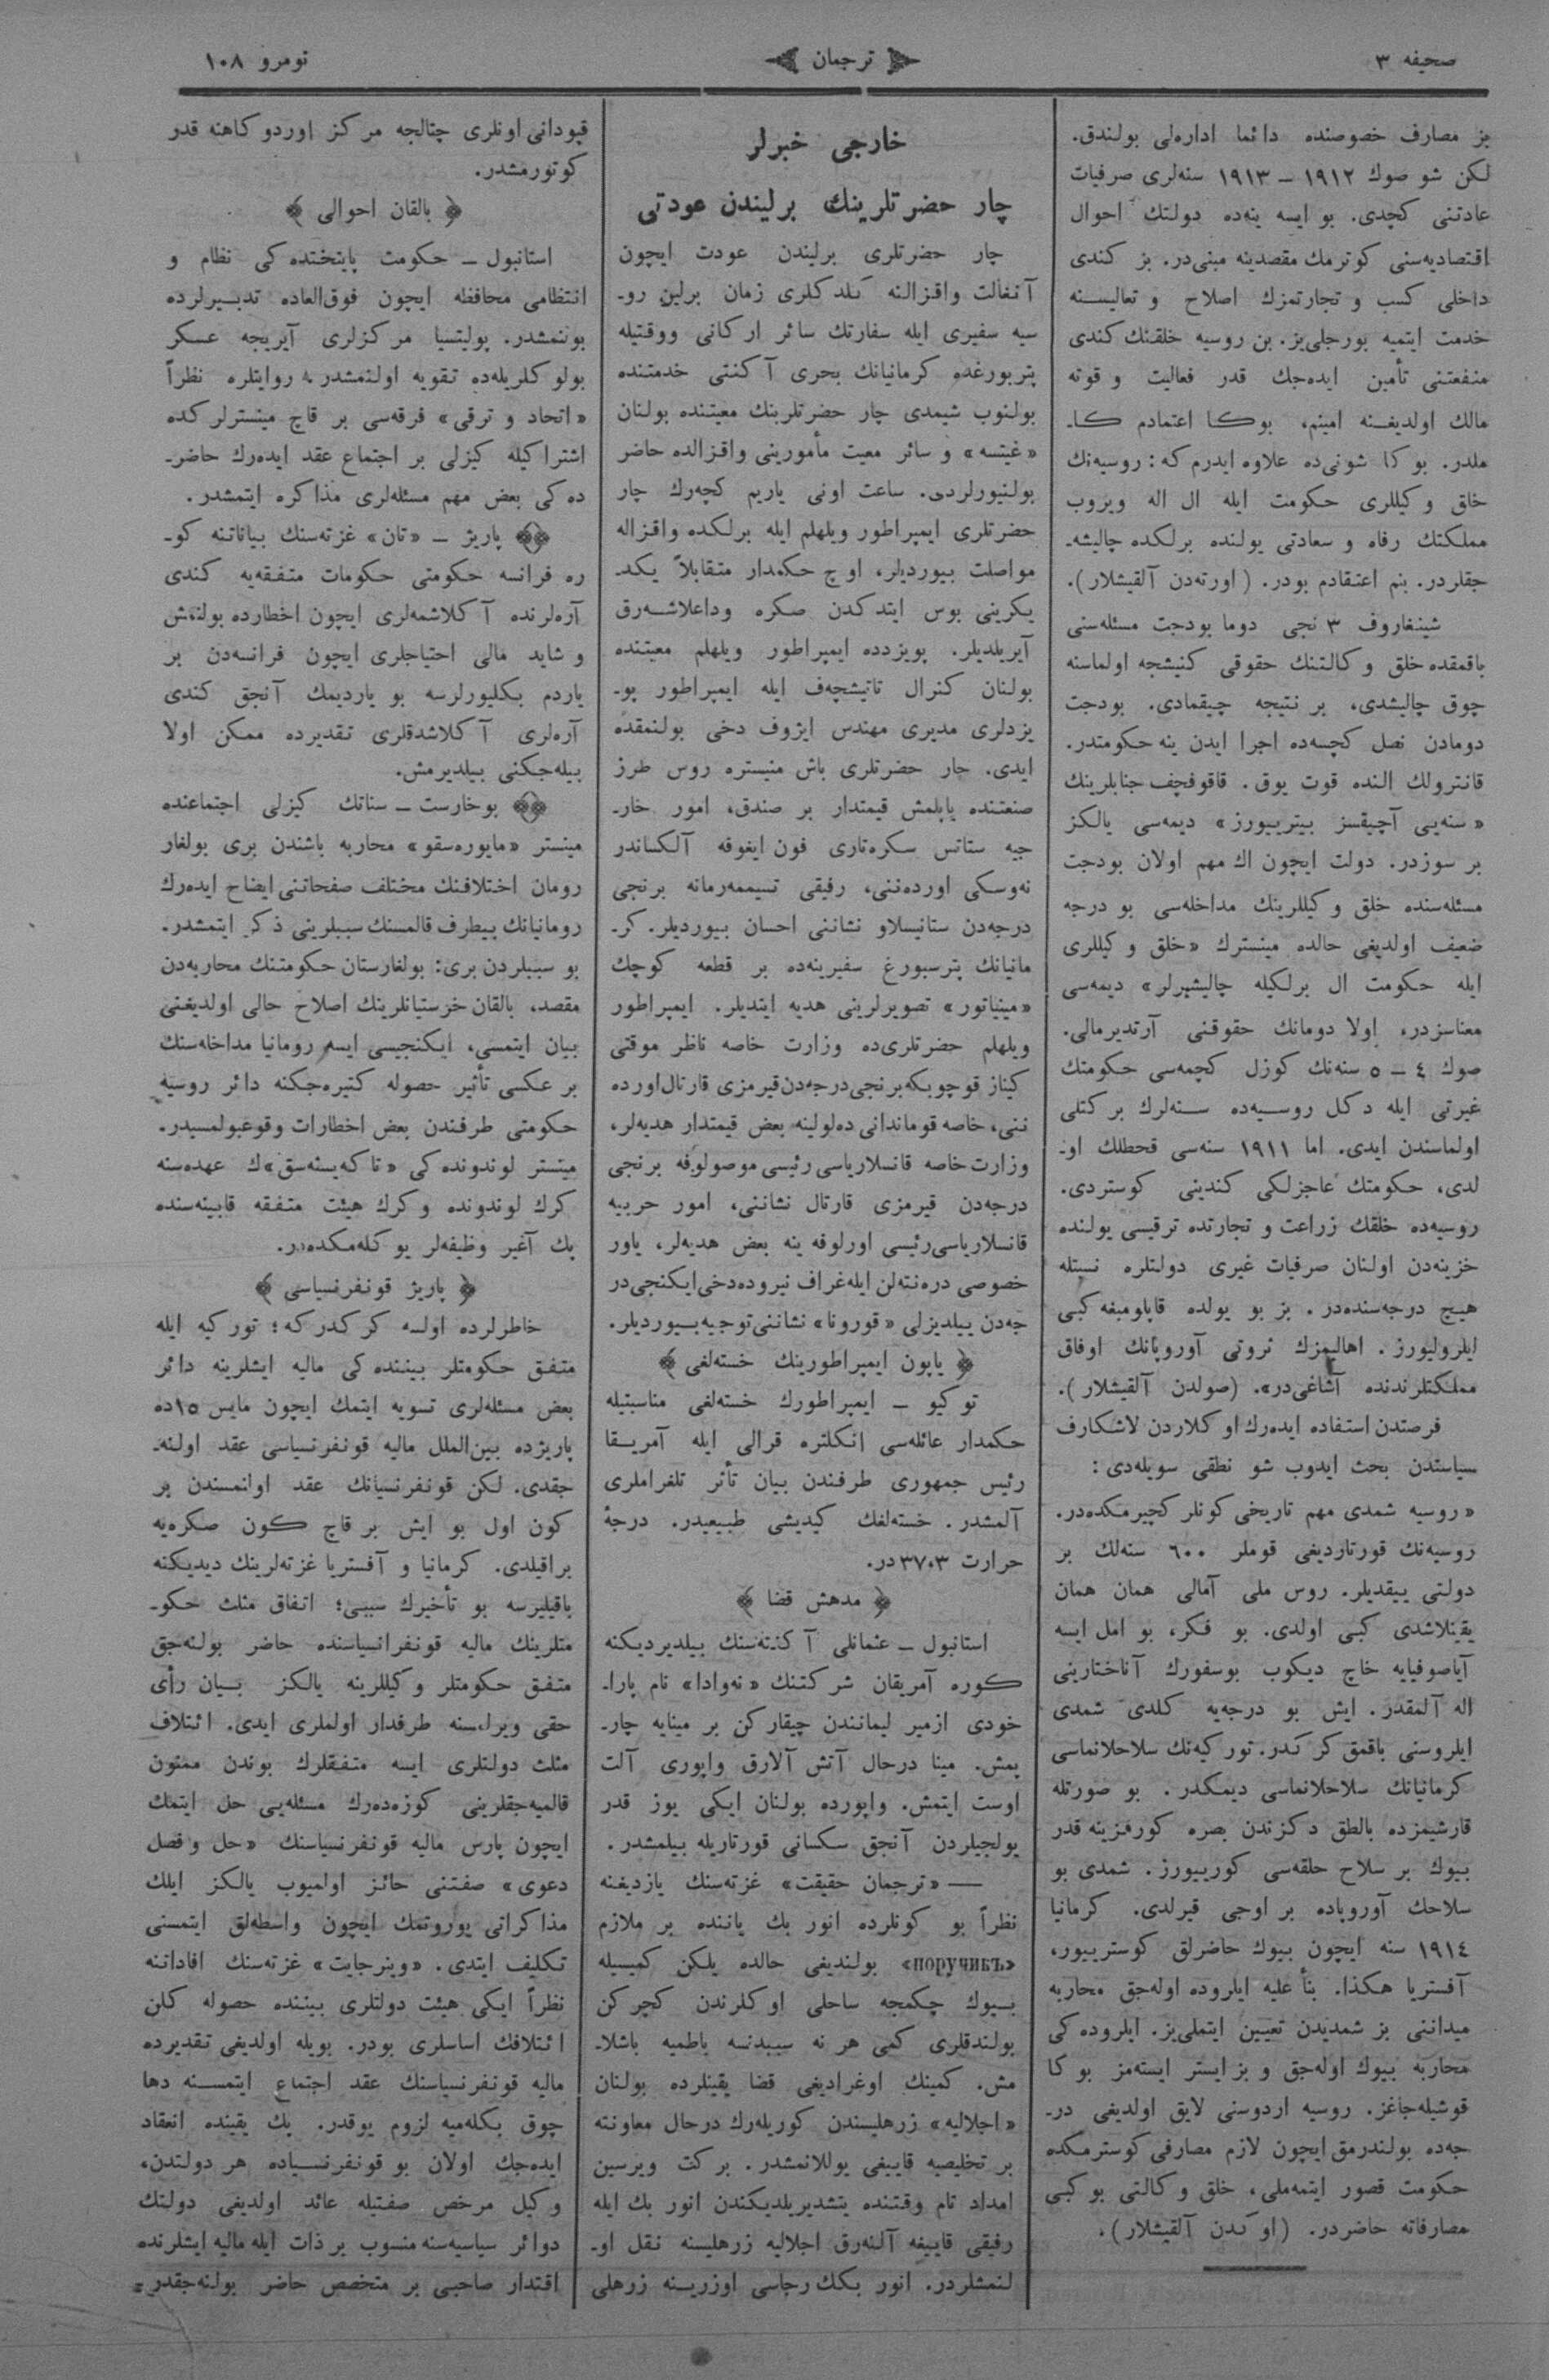 صحیفه ۳
ترجمان
نومرو ۱۰۸
بز مصارف خصوصنده دائما اداره‌لی بولندق.
لكن شو صوك ۱۹۱۲ – ۱۹۱۳ سنه‌لری صرفیات
عادتنی كچدی. بو ایسه ینه‌ده دولتك احوال
اقتصادیه‌سنی كوترمك مقصدینه مبنی‌در. بز كندی
داخلی كسب و تجارتمزك اصلاح و تعالیسنه
خدمت ایتمیه بورجلی‌یز. بن روسیه خلقنك كندی
منفعتنی تأمین ایده‌جك قدر فعالیت و قوته
مالك اولدیغنه امینم، بوكا اعتمادم كا-
ملدر. بوكا شونی‌ده علاوه ایدرم كه: روسیه‌نك
خلق وكیللری حكومت ایله ال اله ویروب
مملكتك رفاه و سعادتی یولنده برلكده چالیشه-
جقلردر. بنم اعتقادم بودر. (اورته‌دن آلقیشلار).
شینغاروف ۳ نجی دوما بودجت مسئله‌سنی
باقمقده خلق وكالتنك حقوقی كنیشجه اولماسنه
چوق چالیشدی، بر نتیجه چیقمادی. بودجت
دومادن نصل كچسه‌ده اجرا ایدن ینه حكومتدر.
قانترولك النده قوت یوق. قاقوفچف جنابلرینك
«سنه‌یی آچیقسز بیتریبورز» دیمه‌سی یالكز
بر سوزدر. دولت ایچون اك مهم اولان بودجت
مسئله‌سنده خلق وكیللرینك مداخله‌سی بو درجه
ضعیف اولدیغی حالده مینسترك «خلق وكیللری
ایله حكومت ال برلكیله چالیشیرلر» دیمه‌سی
معناسزدر، اولا دومانك حقوقنی آرتدیرمالی.
صوك ٤ – ٥ سنه‌نك كوزل كچمه‌سی حكومتك
غیرتی ایله دكل روسیه‌ده سنه‌لرك بركتلی
اولماسندن ایدی. اما ۱۹۱۱ سنه‌سی قحطلك او-
لدی، حكومتك عاجزلكی كندینی كوستردی.
روسیه‌ده خلقك زراعت و تجارتده ترقیسی یولنده
خزینه‌دن اولنان صرفیات غیری دولتلره نسبتله
هیچ درجه‌سنده‌در. بز بو یولده قاپلومبغه كبی
ایلرولیورز. اهالیمزك ثروتی آوروپانك اوفاق
مملكتلرندنده آشاغی‌در». (صولدن آلقیشلار).
فرصتدن استفاده ایده‌رك اوكلاردن لاشكارف
سیاستدن بحث ایدوب شو نطقی سویله‌دی:
«روسیه شمدی مهم تاریخی كونلر كچیرمكده‌در.
روسیه‌نك قورتاردیغی قوملر ٦۰۰ سنه‌لك بر
دولتی ییقدیلر. روس ملی آمالی همان همان
یقینلاشدی كبی اولدی. بو فكر، بو امل ایسه
آیاصوفیایه خاچ دیكوب بوسفورك آناختارینی
اله آلمقدر. ایش بو درجه‌یه كلدی شمدی
ایلروسنی باقمق كركدر. توركیه‌نك سلاحلانماسی
كرمانیانك سلاحلانماسی دیمكدر. بو صورتله
قارشیمزده بالطق دكزندن بصره كورفزینه قدر
بیوك بر سلاح حلقه‌سی كوریبورز. شمدی بو
سلاحك آوروپاده بر اوجی قیرلدی. كرمانیا
۱۹۱٤ سنه ایچون بیوك حاضرلق كوستریبور،
آفستریا هكذا. بنأ علیه ایلروده اوله‌جق محاربه
میداننی بز شمدیدن تعیین ایتملی‌یز. ایلروده‌كی
محاربه بیوك اوله‌جق و بز ایستر ایسته‌مز بوكا
قوشیله‌جاغز. روسیه اردوسنی لایق اولدیغی در-
جه‌ده بولندرمق ایچون لازم مصارفی كوسترمكده
حكومت قصور ایتمه‌ملی، خلق وكالتی بو كبی
مصارفاته حاضردر. (اوكدن آلقیشلار).
خارجی خبرلر
چار حضرتلرینك برلیندن عودتی
چار حضرتلری برلیندن عودت ایچون
آنغالت واقزالنه كلدكلری زمان برلین رو-
سیه سفیری ایله سفارتك سائر اركانی ووقتیله
پتربورغده كرمانیانك بحری آكنتی خدمتنده
بولنوب شیمدی چار حضرتلرینك معیتنده بولنان
«غینسه» و سائر معیت مأمورینی واقزالده حاضر
بولنیورلردی. ساعت اونی یاریم كچه‌رك چار
حضرتلری ایمپراطور ویلهلم ایله برلكده واقزاله
مواصلت بیوردیلر، اوچ حكمدار متقابلاً یكد-
یكرینی بوس ایتدكدن صكره وداعلاشه‌رق
آیریلدیلر. پویزدده ایمپراطور ویلهلم معیتنده
بولنان كنرال تاتیشچه‌ف ایله ایمپراطور پو-
یزدلری مدیری مهندس ایژوف دخی بولنمقده
ایدی. چار حضرتلری باش منیستره روس طرز
صنعتنده یاپلمش قیمتدار بر صندق، امور خار-
جیه ستاتس سكره‌تاری فون ایغوفه آلكساندر
نه‌وسكی اورده‌ننی، رفیقی تسیممه‌رمانه برنجی
درجه‌دن ستانیسلاو نشاننی احسان بیوردیلر. كر-
مانیانك پترسبورغ سفیرینه‌ده بر قطعه كوچك
«مینیاتور» تصویرلرینی هدیه ایتدیلر. ایمپراطور
ویلهلم حضرتلری‌ده وزارت خاصه ناظر موقتی
كیناز قوچوبكه برنجی درجه‌دن قیرمزی قارتال اورده
ننی، خاصه قوماندانی ده‌دولینه بعض قیمتدار هدیه‌لر،
وزارت خاصه قانسلاریاسی رئیسی موصولوفه برنجی
درجه‌دن قیرمزی قارتال نشاننی، امور حربیه
قانسلاریاسی رئیسی اورلوفه ینه بعض هدیه‌لر، یاور
خصوصی دره‌نته‌لن ایله‌غراف نیروده دخی ایكنجی در
جه‌دن ییلدیزلی «قورونا» نشاننی توجیه بیوردیلر.
﴿ یاپون ایمپراطورینك خسته‌لغی ﴾
توكیو – ایمپراطورك خسته‌لغی مناسبتیله
حكمدار عائله‌سی انكلتره قرالی ایله آمریقا
رئیس جمهوری طرفندن بیان تأثر تلغراملری
آلمشدر. خسته‌لغك كیدیشی طبیعیدر. درجۀ
حرارت ۳۷،۳ در.
﴿ مدهش قضا ﴾
استانبول – عثمانلی آكنته‌سنك بیلدیردیكنه
كوره آمریقان شركتنك «نه‌وادا» نام پارا-
خودی ازمیر لیمانندن چیقاركن بر مینایه چار-
پمش. مینا درحال آتش آلارق واپوری آلت
اوست ایتمش. واپورده بولنان ایكی یوز قدر
یولجیلردن آنجق سكسانی قورتاریله بیلمشدر.
— «ترجمان حقیقت» غزته‌سنك یازدیغنه
نظراً بو كونلرده انور بك یاننده بر ملازم
«поручикъ» بولندیغی حالده یلكن كمیسیله
بیوك چكمجه ساحلی اوكلرندن كچركن
بولندقلری كمی هر نه سببدنسه باطمیه باشلا-
مش. كمینك اوغرادیغی قضا یقینلرده بولنان
«اجلالیه» زرهلیسندن كوریله‌رك درحال معاونته
بر تخلیصیه قاییغی یوللانمشدر. بركت ویرسین
امداد تام وقتنده یتشدیریلدیكندن انور بك ایله
رفیقی قاییغه آلنه‌رق اجلالیه زرهلیسنه نقل او-
لنمشلردر. انور بكك رجاسی اوزرینه زرهلی
قپودانی اونلری چتالجه مركز اوردوكاهنه قدر
كوتورمشدر.
﴿ بالقان احوالی ﴾
استانبول – حكومت پایتختده‌كی نظام و
انتظامی محافظه ایچون فوق‌العاده تدبیرلرده
بولنمشدر. پولیتسیا مركزلری آیریجه عسكر
بولوكلریله‌ده تقویه اولنمشدر. روایتلره نظراً
«اتحاد و ترقی» فرقه‌سی بر قاچ مینسترلركده
اشتراكیله كیزلی بر اجتماع عقد ایده‌رك حاضر-
ده‌كی بعض مهم مسئله‌لری مذاكره ایتمشدر.
پاریژ – «تان» غزته‌سنك بیاناتنه كو-
ره فرانسه حكومتی حكومات متفقه‌یه كندی
آره‌لرنده آكلاشمه‌لری ایچون اخطارده بولنمش
و شاید مالی احتیاجلری ایچون فرانسه‌دن بر
یاردم بكلیورلرسه بو یاردیمك آنجق كندی
آره‌لری آكلاشدقلری تقدیرده ممكن اولا
بیله‌جكنی بیلدیرمش.
بوخارست – سناتك كیزلی اجتماعنده
مینستر «مایوره‌سقو» محاربه باشندن بری بولغار
رومان اختلافنك مختلف صفحاتنی ایضاح ایده‌رك
رومانیانك بیطرف قالمسنك سببلرینی ذكر ایتمشدر.
بو سببلردن بری: بولغارستان حكومتنك محاربه‌دن
مقصد، بالقان خرستیانلرینك اصلاح حالی اولدیغنی
بیان ایتمسی، ایكنجیسی ایسه رومانیا مداخله‌سنك
بر عكسی تأثیر حصوله كتیره‌جكنه دائر روسیه
حكومتی طرفندن بعض اخطارات وقوعبولمسیدر.
مینستر لوندونده‌كی «تاكه‌یسنه‌سق»ك عهده‌سنه
كرك لوندونده و كرك هیئت متفقه قابینه‌سنده
پك آغیر وظیفه‌لر یوكله‌مكده‌در.
﴿ پاریژ قونفرنسیاسی ﴾
خاطرلرده اولسه كركدركه؛ توركیه ایله
متفق حكومتلر بیننده‌كی مالیه ایشلرینه دائر
بعض مسئله‌لری تسویه ایتمك ایچون مایس ۱٥ده
پاریژده بین‌الملل مالیه قونفرنسیاسی عقد اولنه-
جقدی. لكن قونفرنسیانك عقد اولنمسندن بر
كون اول بو ایش بر قاچ كون صكره‌یه
براقیلدی. كرمانیا و آفستریا غزته‌لرینك دیدیكنه
باقیلیرسه بو تأخیرك سببی؛ اتفاق مثلث حكو-
متلرینك مالیه قونفرانسیاسنده حاضر بولنه‌جق
متفق حكومتلر وكیللرینه یالكز بیان رأی
حقی ویرلمسنه طرفدار اولملری ایدی. ائتلاف
مثلث دولتلری ایسه متفقلرك بوندن ممنون
قالمیه‌جقلرینی كوزه‌ده‌رك مسئله‌یی حل ایتمك
ایچون پارس مالیه قونفرنسیاسنك «حل و فصل
دعوی» صفتنی حائز اولمیوب یالكز ایلك
مذاكراتی یوروتمك ایچون واسطه‌لق ایتمسنی
تكلیف ایتدی. «وینرجایت» غزته‌سنك افاداتنه
نظراً ایكی هیئت دولتلری بیننده حصوله كلن
ائتلافك اساسلری بودر. بویله اولدیغی تقدیرده
مالیه قونفرنسیاسنك عقد اجتماع ایتمسنه دها
چوق بكله‌میه لزوم یوقدر. پك یقینده انعقاد
ایده‌جك اولان بو قونفرنسیاده هر دولتدن،
وكیل مرخص صفتیله عائد اولدیغی دولتك
دوائر سیاسیه‌سنه منسوب بر ذات ایله مالیه ایشلرنده
اقتدار صاحبی بر متخصص حاضر بولنه‌جقدر.